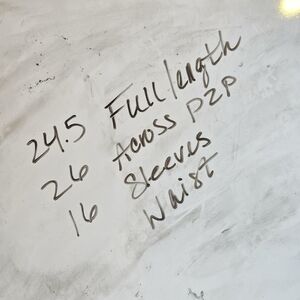 24.5 Full length
26 Across P2P
16 Sleeves
Waist